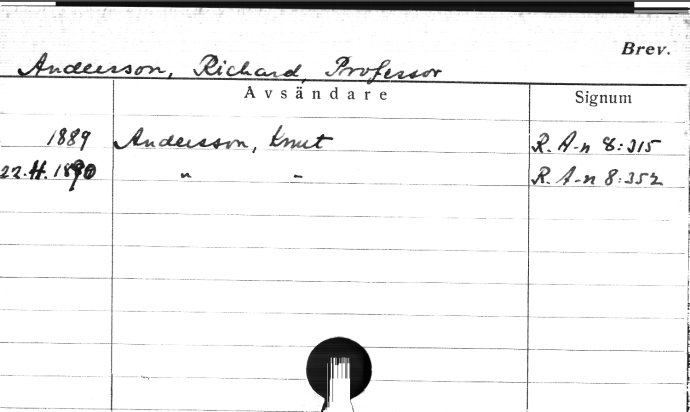 Brev.
Andersson, Richard, Professor
Avsändare Signum
1889 Andersson, Knut R. A-n 8:315
22.4.1890 " - R. A-n 8:352